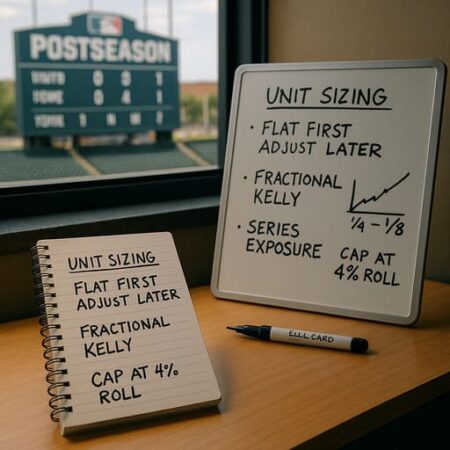 POSTSEASON
0 3 1
0 4 1
UNIT SIZING
• FLAT FIRST
ADJUST LATER
• FRACTIONAL
KELLY
1/4 – 1/8
• SERIES
EXPOSURE
CAP AT
4% ROLL
UNIT SIZING
FLAT FIRST
ADJUST LATER
FRACTIONAL
KELLY
CAP AT 4%
ROLL
CARD